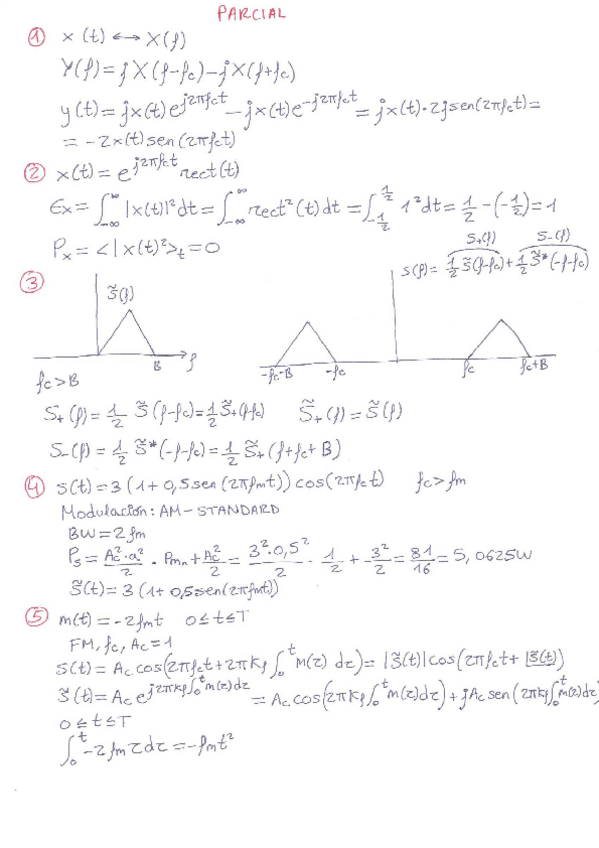 PARCIAL
① x(t) ⟷ X(f)
Y(f) = j X(f-fc) - j X(f+fc)
y(t) = j x(t) e^{j2πfct} - j x(t) e^{-j2πfct} = j x(t) · 2j sen(2πfct) =
= -2x(t) sen(2πfct)
② x(t) = e^{j2πfct} rect(t)
Ex = ∫_{-∞}^{∞} |x(t)|² dt = ∫_{-∞}^{∞} rect²(t) dt = ∫_{-1/2}^{1/2} 1² dt = 1/2 - (-1/2) = 1
Px = <|x(t)²>t = 0
S+(f) S-(f)
S(f) = 1/2 S̃(f-fc) + 1/2 S̃*(-f-fc)
③
S̃(f)
B f
-fc-B -fc fc fc+B
fc > B
S+(f) = 1/2 S̃(f-fc) = 1/2 S̃+(f-fc) S̃+(f) = S̃(f)
S-(f) = 1/2 S̃*(-f-fc) = 1/2 S̃+(f+fc+B)
④ S(t) = 3(1 + 0,5 sen(2πfmt)) cos(2πfct) fc > fm
Modulación: AM-STANDARD
BW = 2fm
Ps = Ac²·a²/2 · Pmn + Ac²/2 = 3²·0,5²/2 · 1/2 + 3²/2 = 81/16 = 5,0625W
S̃(t) = 3(1 + 0,5 sen(2πfmt))
⑤ m(t) = -2fmt 0≤t≤T
FM, fc, Ac = 1
S(t) = Ac cos(2πfct + 2πKf ∫_0^t m(τ) dτ) = |S̃(t)| cos(2πfct + |S̃(t))
S̃(t) = Ac e^{j2πKf ∫_0^t m(τ)dτ} = Ac cos(2πKf ∫_0^t m(τ)dτ) + jAc sen(2πKf ∫_0^t m(τ)dτ)
0≤t≤T
∫_0^t -2fmτ dτ = -fmt²